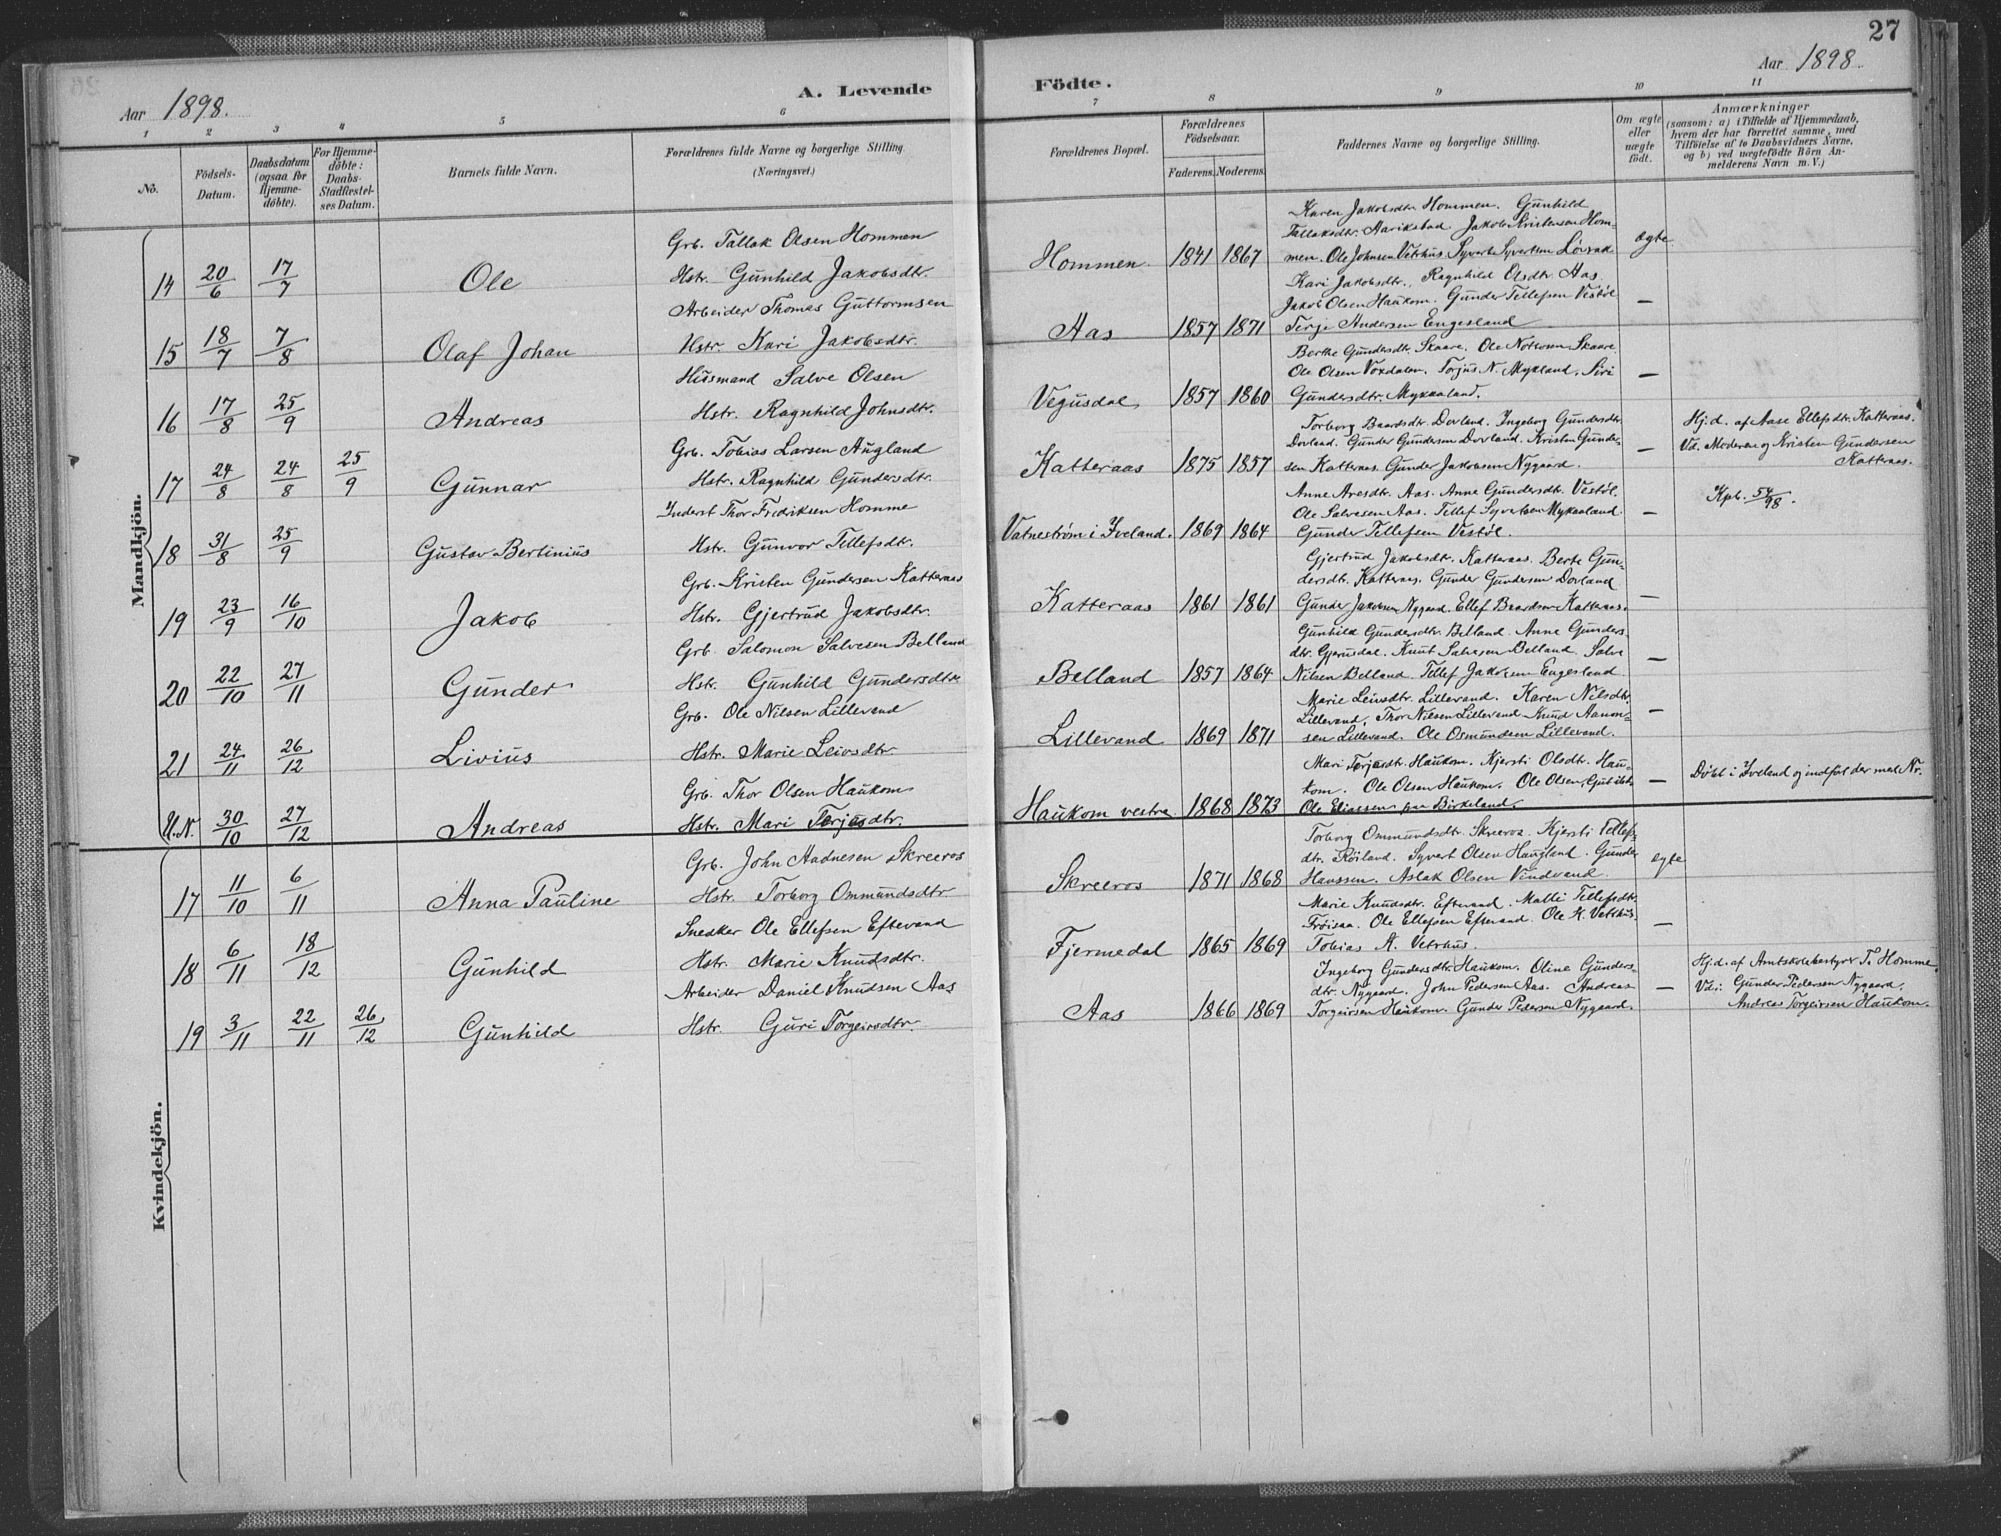 27
Aar 1898.
A. Levende
Födte.
Aar 1898.
1 2 3 4 5 6 7 8 9 10 11
No.
Fødsels-Datum.
Daabsdatum (ogsaa for Hjemme-döbte).
For Hjemme-döbte: Daabs-Stadfæstel-ses Datum.
Barnets fulde Navn.
Forældrenes fulde Navne og borgerlige Stilling.
(Næringsvei.)
Forældrenes Bopæl.
Forældrenes Födselsaar.
Faderens. Moderens.
Faddernes Navne og borgerlige Stilling.
Om ægte eller uægte födt.
Anmærkninger
(saasom: a) i Tilfælde af Hjemmedaab,
hvem der har forrettet samme, med
Tilföielse af to Daabsvidners Navne,
og b) ved uægtefödte Börn An-
melderens Navn m. V.)
Mandkjön.
14 20/6 17/7 Ole
Grb. Tallak Olsen Hommen
Hstr. Gunhild Jakobsdtr.
Hommen 1841 1867
Karen Jakobsdtr. Hommen. Gunhild
Tallaksdtr. Jakob Kristensen Hom-
men. Ole Johnsen Vetrhus. Syvert Syvertsen Løvrak
ægte
15 18/7 7/8 Olaf Johan
Arbeider Thomas Guttormsen
Hstr. Kari Jakobsdtr.
Aas 1857 1871
Kari Jakobsdtr., Ragnhild Olsdtr. Aas
Jakob Olsen Haukom. Gunder Tellefsen Vestöl
Terje Andersen Engesland
—
16 17/8 25/9 Andreas
Husmand Salve Olsen
Hstr. Ragnhild Johnsdtr.
Vegusdal 1857 1860
Berthe Gundersdtr. Skaare. Ole Notosen Skaare.
Ole Olsen Voxdalen. Torjus N. Mykland. Siri
Gundersdtr. Mykaland.
—
17 24/8 24/8 25/9 Gunnar
Grb. Tobias Larsen Augland
Hstr. Ragnhild Gundersdtr.
Katteraas 1875 1857
Torborg Baardsdtr. Dovland. Ingeborg Gundersdtr.
Dovland. Gunder Gundersen Dovland. Kristen Gunder-
sen Katteraas. Gunder Jakobsen Nygaard.
—
Hj.d. af Aase Ellefsdtr. Katteraas.
Vd. Moderen og Kristen Gundersen
Katteraas.
18 31/8 25/9 Gustav Bertinius
Inderst Thor Fredriksen Homme
Hstr. Gunvor Tellefsdtr.
Vatneström i Iveland. 1869 1864
Anne Aresdtr. Aas. Anne Gundersdtr. Vestöl.
Ole Salvesen Aas. Tellef Syvertsen Mykaaland.
Gunder Tellefsen Vestöl.
—
Kpb. 54/98.
19 23/9 16/10 Jakob
Grb. Kristen Gundersen Katteraas
Hstr. Gjertrud Jakobsdtr.
Katteraas 1861 1861
Gjertrud Jakobsdtr. Katteraas. Berte Gun-
dersdtr. Katteraas. Gunder Gundersen Dovland
Gunder Jakobsen Nygaard. Ellef Baardsen Katteraas.
—
20 22/10 27/11 Gunder
Grb. Salomon Salvesen Belland
Hstr. Gunhild Gundersdtr.
Belland 1857 1864
Gunhild Gundersdtr. Belland. Anne Gunders-
dtr. Gjerusdal. Knut Salvesen Belland. Salve
Nilsen Belland. Tellef Jakobsen Engesland
—
21 24/11 26/12 Livius
Grb. Ole Nilsen Lillevand
Hstr. Marie Leivsdtr.
Lillevand 1869 1871
Marie Leivsdtr. Lillevand. Karen Nilsdtr.
Lillevand, Thor Nilsen Lillevand Knud Aanon-
sen Lillevand. Ole Osmundsen Lillevand.
—
U.N. 30/10 27/12 Andreas
Grb. Thor Olsen Haukom
Hstr. Mari Terjesdtr.
Haukom vestre 1868 1873
Mari Terjesdtr. Haukom. Kjersti Olsdtr. Hau-
kom. Ole Olsen Haukom. Ole Olsen
Ole Eliassen paa Birkeland.
—
Döbt i Iveland og indfört der med Nr.
Kvindekjön.
17 11/10 6/11 Anna Pauline
Grb. John Aadnesen Skreeros
Hstr. Torborg Ommundsdtr
Skreeros 1871 1868
Torborg Ommundsdtr. Skreeros. Kjersti Tellefs-
dtr. Röiland. Syvert Olsen Haugland. Gunder
Hanssen. Aslak Olsen Vindvand.
ægte
18 6/11 18/12 Gunhild
Snedker Ole Ellefsen Eftevand
Hstr. Marie Knudsdtr.
Fjermedal 1865 1869
Marie Knudsdtr. Eftevand. Malli Tellefsdtr.
Fröisaa. Ole Ellefsen Eftevand. Ole K. Vetrhus.
Tobias A. Vetrhus.
—
19 3/11 22/11 26/12 Gunhild
Arbeider Daniel Knudsen Aas
Hstr. Guri Torgeirsdtr.
Aas 1866 1869
Ingeborg Gundersdtr. Haukom. Oline Gunders-
dtr. Nygaard. John Pedersen Aas. Andreas
Torgeirsen Haukom. Gunder Pedersen Nygaard.
—
Hj.d. af Amtskolebestyrer T. Homme.
Vd.: Gunder Pedersen Nygaard,
Andreas Torgeirsen Haukom.